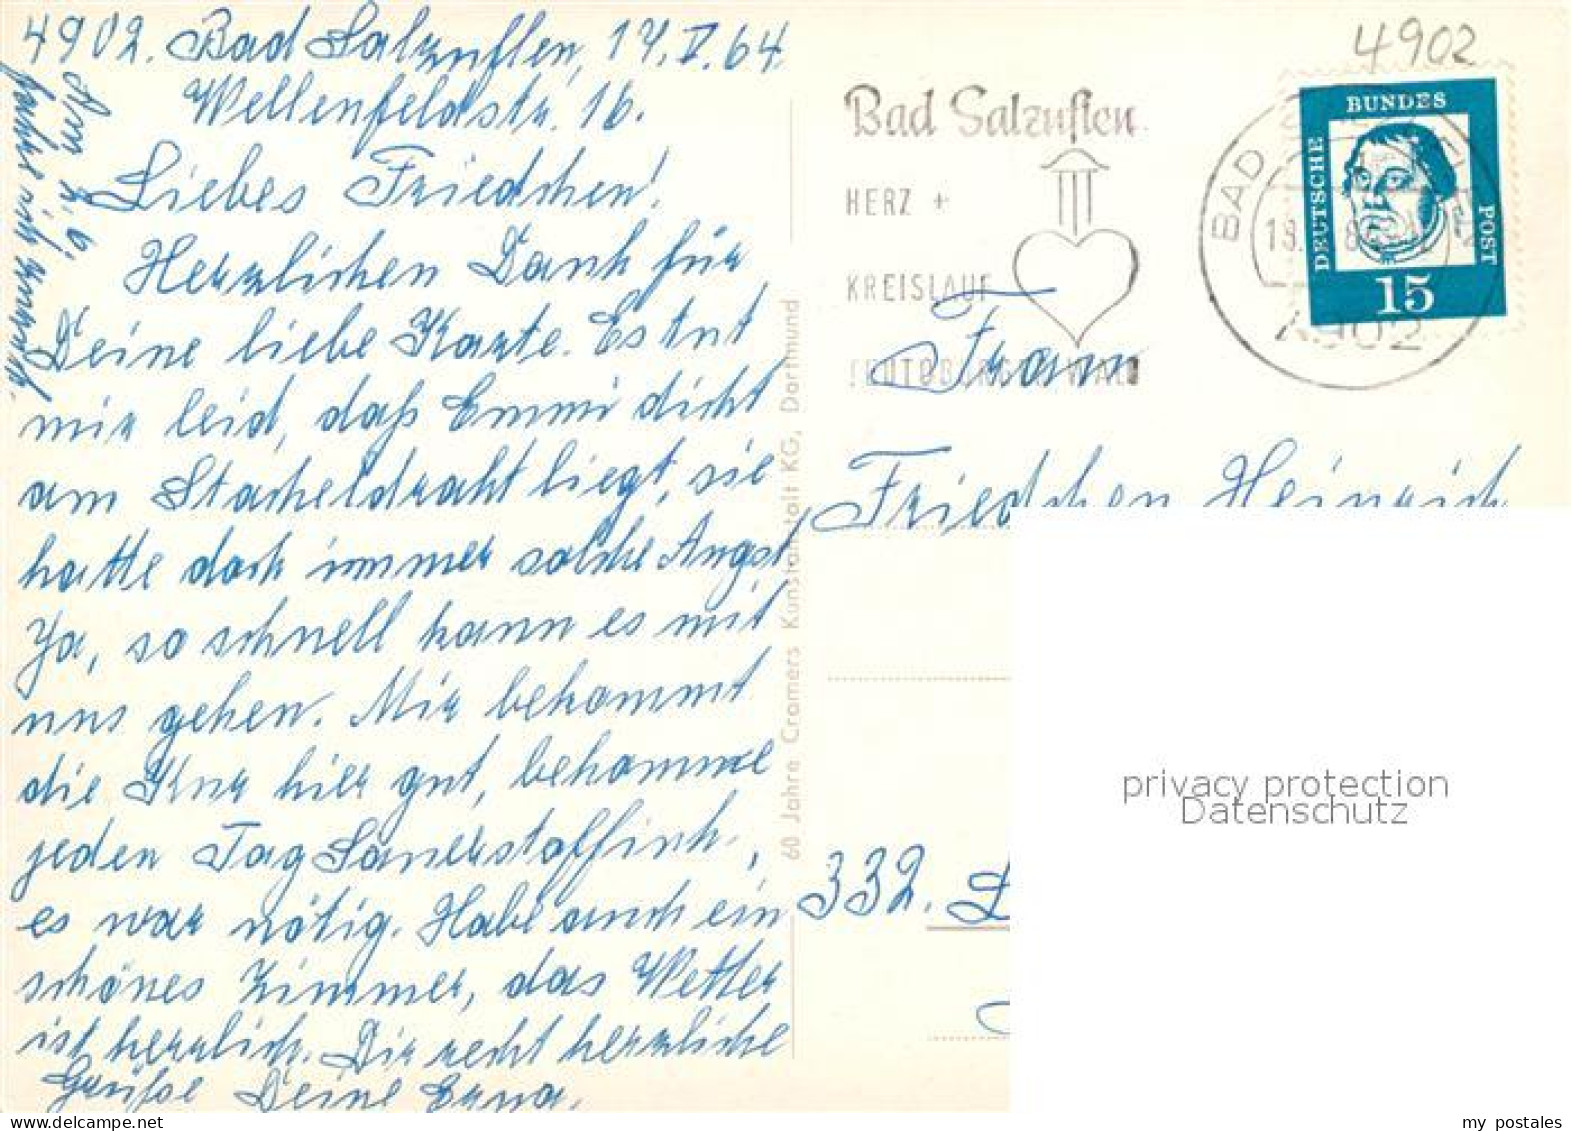 4902. Bad Salzuflen, 17.V.64
Wellenfeldstr. 16.
Liebes Friedchen!
Herzlichen Dank für
Deine liebe Karte. Es tut
mir leid, daß Emmi dicht
am Stacheldraht liegt, sie
hatte doch immer solche Angst,
Ja, so schnell kann es mit
uns gehen. Mir bekommt
die Kur hier gut, bekomme
jeden Tag Sauerstoffinh.,
es war nötig. Habe auch ein
schönes Zimmer, das Wetter
ist herrlich. Dir recht herzliche
Grüße Deine Erna.
fahre ich zurück.
60 Jahre Cramers Kunstanstalt KG, Dortmund
Bad Salzuflen
HERZ +
KREISLAUF
TEUTOBURGER WALD
4902
BAD
4902
DEUTSCHE
BUNDES
POST
15
Frau
Friedchen Heinrich
332.
privacy protection
Datenschutz
delcampe.net
my_postales